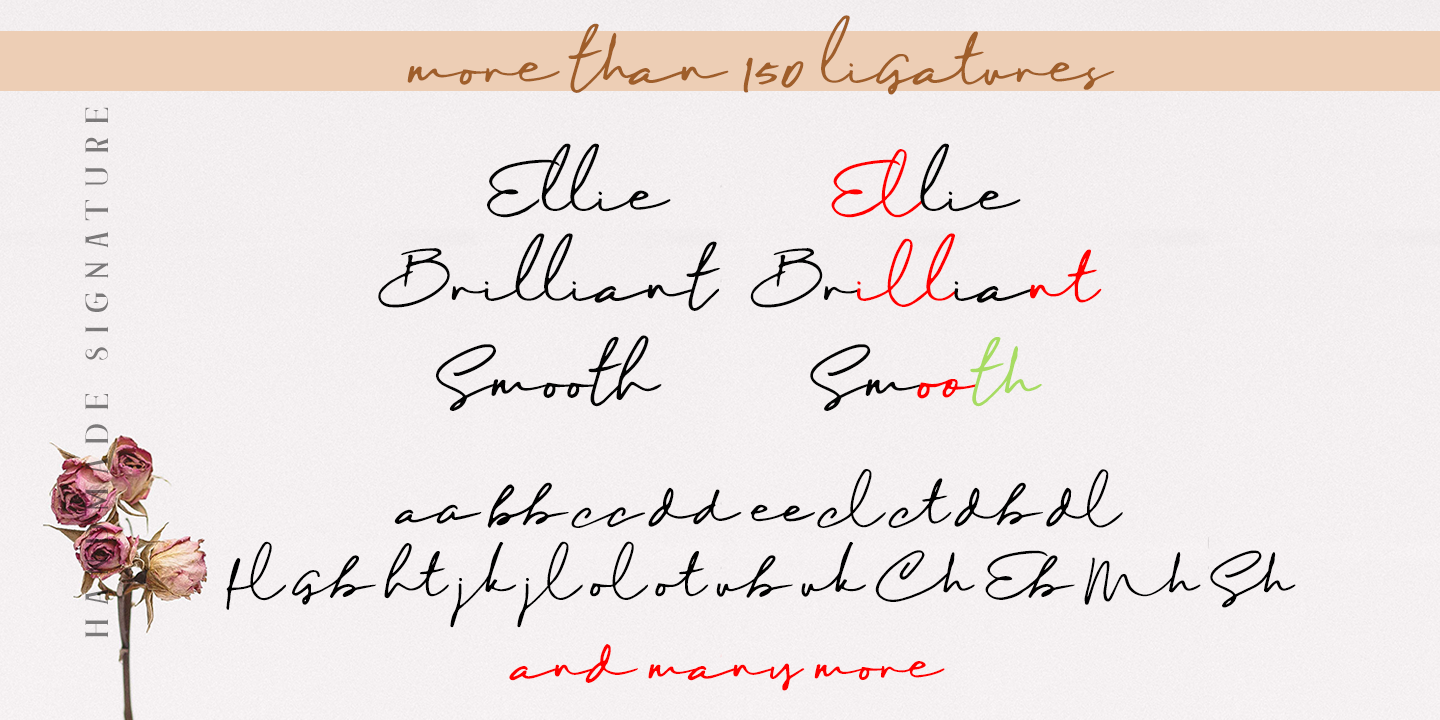 more than 150 ligatures
HANDMADE SIGNATURE
Ellie Ellie
Brilliant Brilliant
Smooth Smooth
aa bb cc dd ee cl ct db dl
fl gb ht jk jl ol ot ub uk Ch Eb Mh Sh
and many more